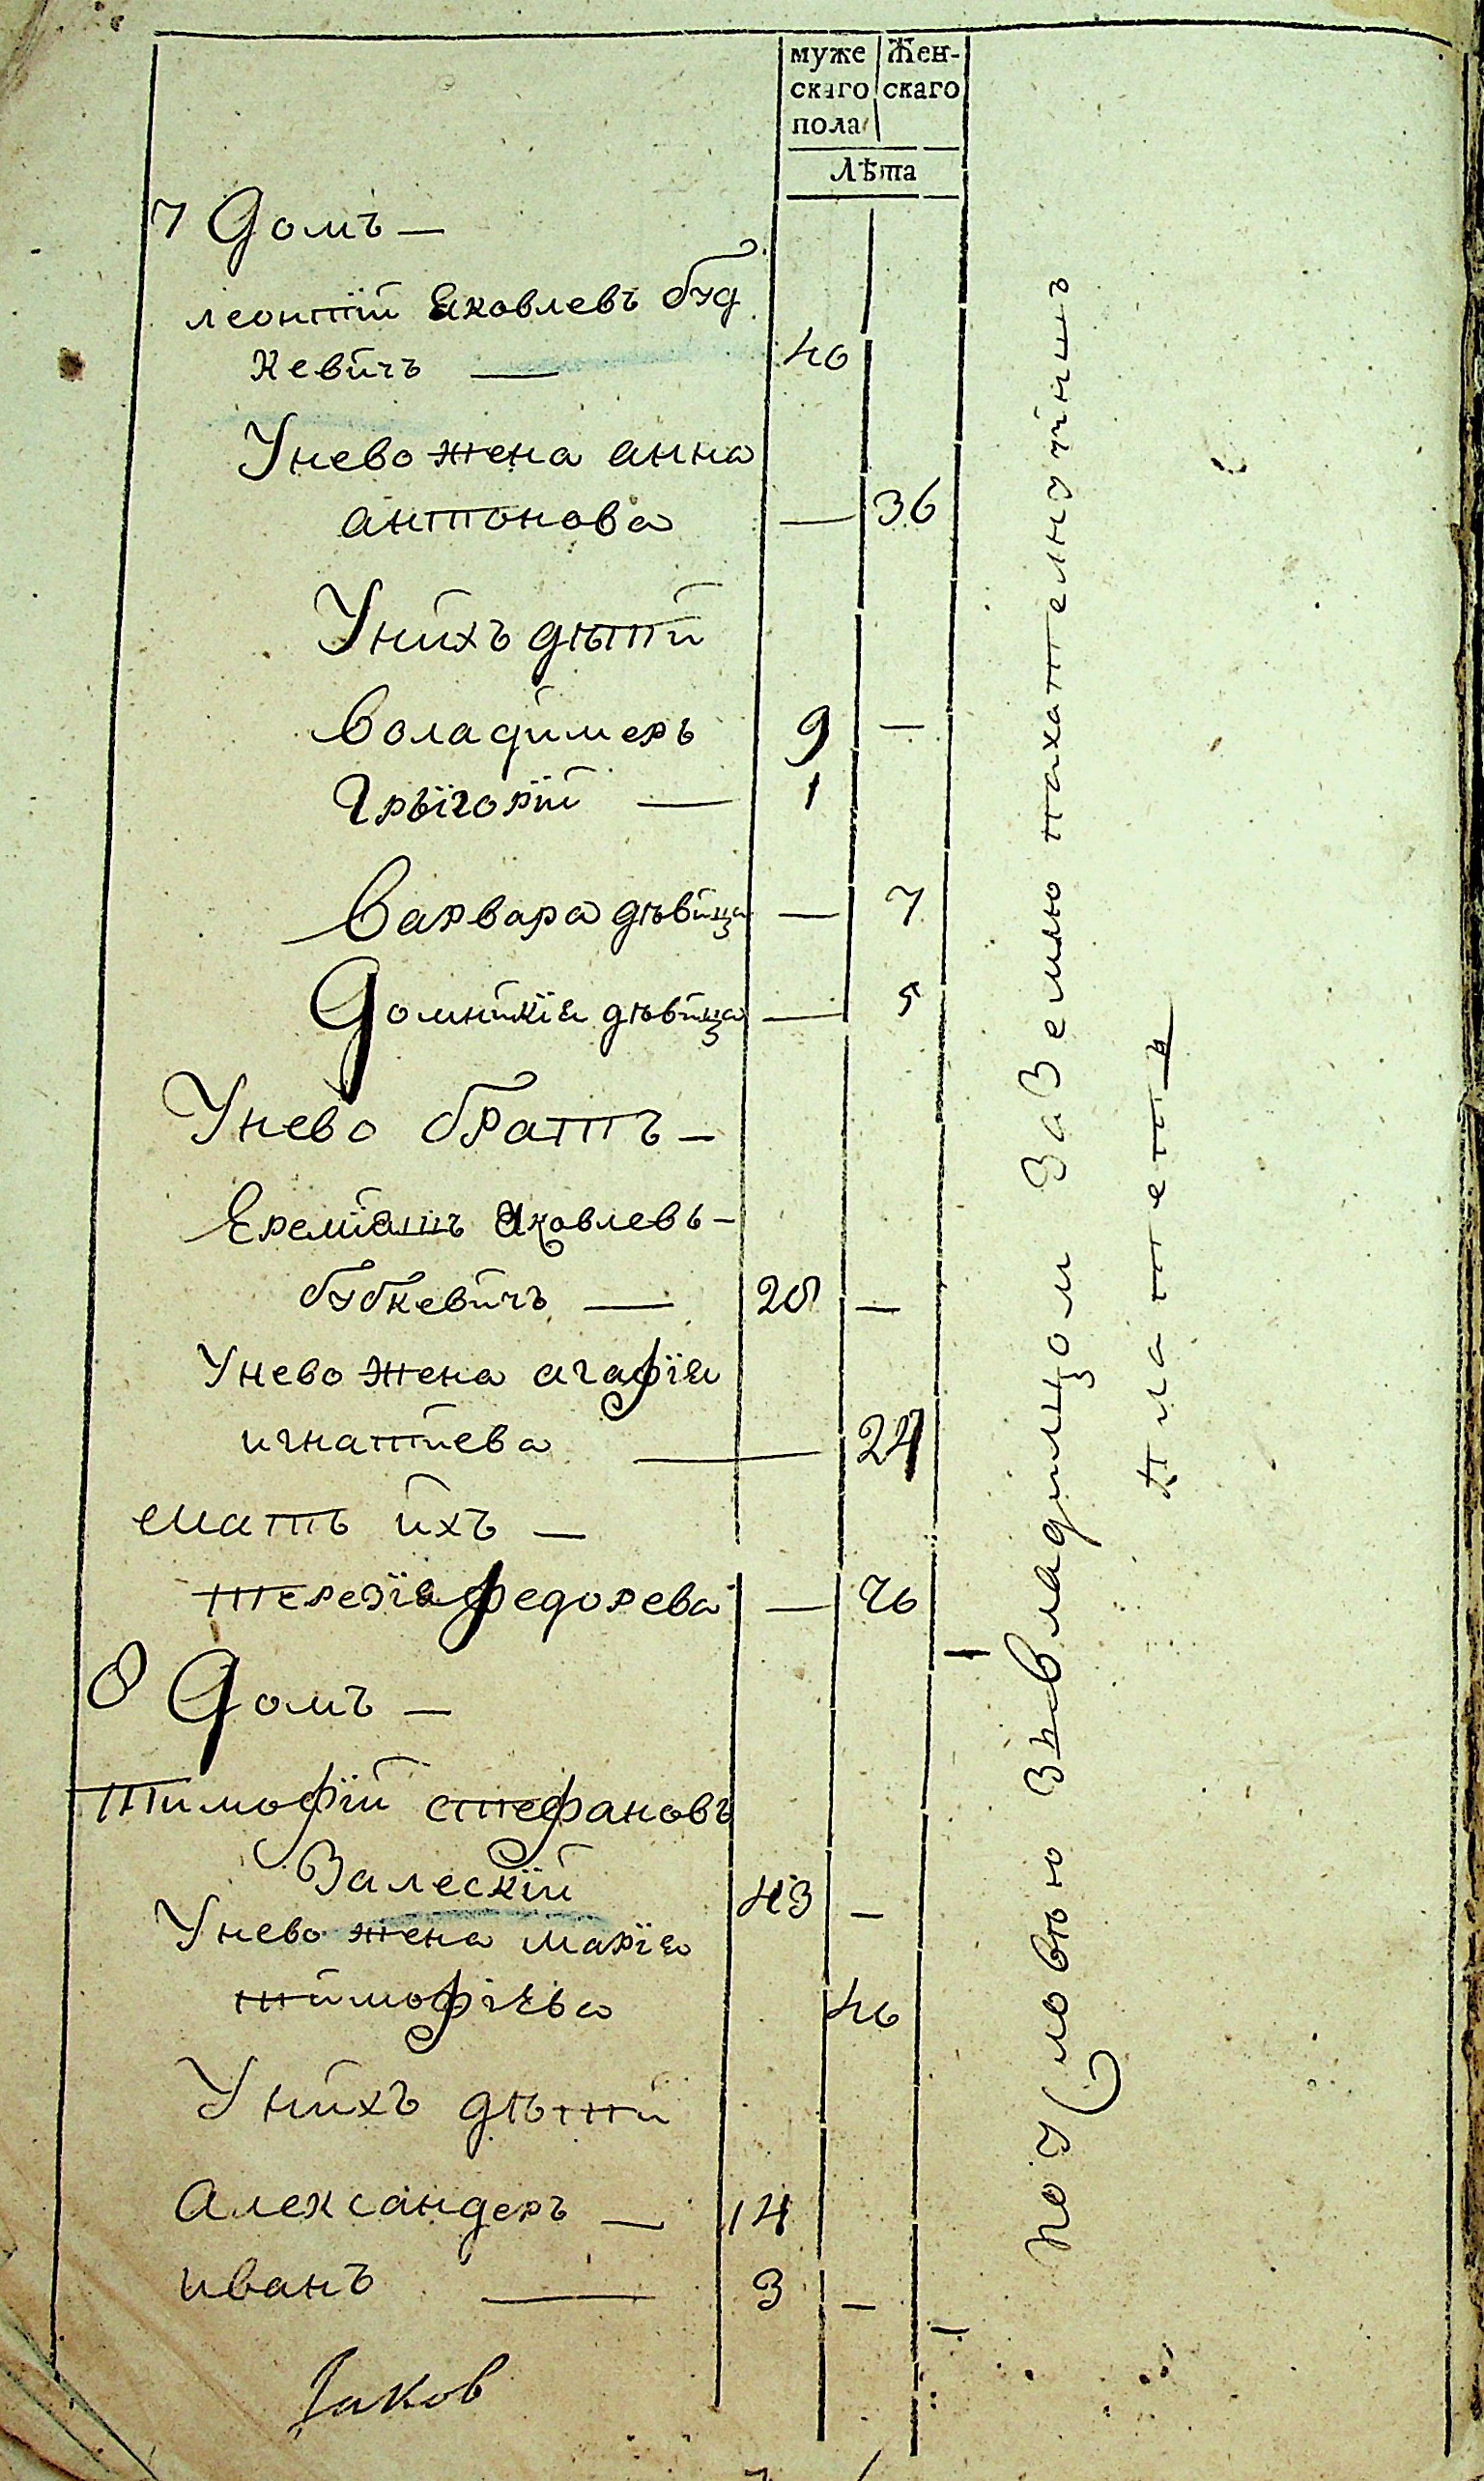 муже
скаго
пола
Жен-
скаго
Лѣта
7 Домъ —
леонтїй Яковлевъ буд
кевичъ — 40
Унево жена анна
антонова — 36
Унихъ дѣти
Воладимеръ 9 —
Грыгорїй — 1
Варвара дѣвица — 7
Домникїя дѣвица — 5
Унево братъ —
Еремїашъ Яковлевъ —
будкевичъ — 28 —
Унево жена агафїя
игнатиева — 24
мать ихъ —
терезїя федорева — 76
8 Домъ —
тимофїй стефановъ
Залескїй 43 —
Унево жена марїя
тимофїева 40
Унихъ дѣти
Александеръ — 14
иванъ — 3 —
Яков
поусловѣю зъвладилцом заземлю пахателную
платетъ